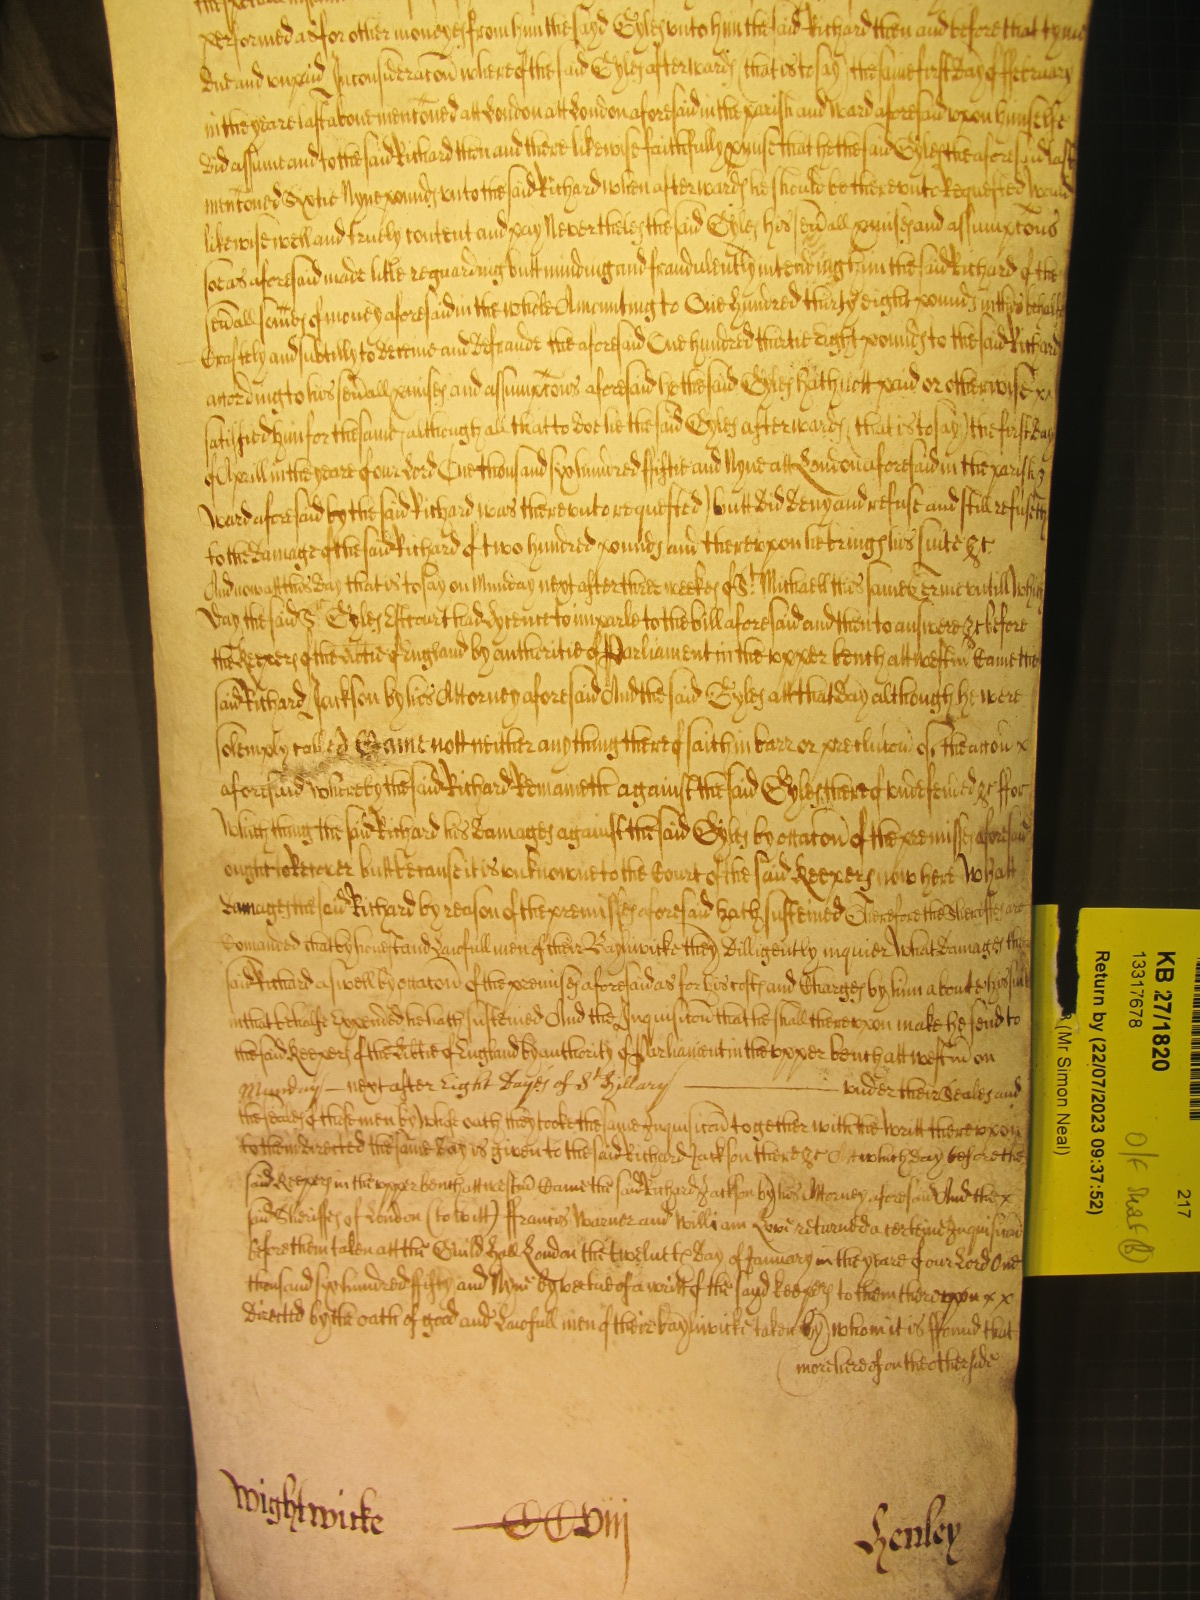 performed as for other moneyes from him the sayd Gyles unto him the said Richard then and before that tyme
due and unpaid In consideracon whereof the said Gyles afterwards (that is to say) the same first day of February
in the yeare last above mentoned att London att London aforesaid in the parish and ward aforesaid upon himselfe
did assume and to the said Richard then and there likewise faithfully pmise that he the said Gyles the aforesaid last
mentoned Sixtie Nyne pounds unto the said Richard when afterwards he should be thereunto Requested would
likewise well and truely content and pay Nevertheles the said Gyles his sevall pmises and assumpcons
soe as aforesaid made litle reguarding butt minding and fraudulently intending him the said Richard of the
sevall somes of money aforesaid in the whole Amounting to One hundred thirty eight pounds in this behalfe
Craftely and subtilly to deceive and defraude the aforesaid One hundred thirtie eight pounds to the said Richard
according to his sevall pmises and assumpcons aforesaid he the said Gyles hath nott paid or otherwise x
satisfied him for the same although all that to doe he the said Gyles afterwards (that is to say) the first day
of Aprill in the yeare of our Lord One thousand six hundred fiftie and Nyne att London aforesaid in the parish &
Ward aforesaid by the said Richard was thereunto requested) butt did deny and refuse and still refuseth
to the damage of the said Richard of two hundred pounds and thereupon he brings his suite &c
And now att this day that is to say on Munday next after three weekes of St. Michaell this same Terme untill which
day the said Gyles Estcourt had lycence to imparle to the bill aforesaid and then to answere &c before
the Keepers of the libtie of England by authoritie of Parliament in the upper bench att westm Came the
said Richard Jackson by his Attorney aforesaid And the said Gyles att that day although he were
solemply called Came nott neither any thing thereof saith in barr or preclucon of the accon x
aforesaid whereby the said Richard Remaineth against the said Gyles thereof undefended &c ffor
which thing the said Richard his damages against the said Gyles by occacon of the premisses aforesaid
ought to Recover butt because it is unknowne to the Court of the said Keepers now here what
damages the said Richard by reason of the premisses aforesaid hath susteined Therefore the Sheriffes are
Comanded that by honest and Lawfull men of their Bayliwicke they dilligently inquier what damages the
said Richard aswell by occacon of the premises aforesaid as for his costs and Charges by him about his suit
in that behalfe Expended he hath susteined And the Inquisicon that he shall thereupon make he send to
the said Keepers of the libtie of England by authority of Parliament in the upper bench att westm on
Munday next after Eight dayes of St Hillary under their Seales and
the seales of those men by whose oath they tooke the same Inquisicon together with the Writt thereupon
to them directed the same day is given to the said Richard Jackson there &c Att which day before the
said Keepers in the upper bench att westm Came the said Richard Jackson by his Attorney aforesaid And the x
said Sheriffes of London (to witt) ffrancis Warner and William Love returned a certeine Inquisicon
before them taken att the Guild hall London the twelveth day of January in the yeare of our Lord One
thousand six hundred fifty and Nyne by vertue of a writt of the sayd Keepers to them thereupon x x
directed by the oath of good and Lawfull men of there bayliwicke taken by whom it is ffound that
more hereof on the other side
Wightwicke CCviij Henley
KB 27/1820
13317678
Return by (22/07/2023 09:37:52)
(Mr Simon Neal)
217